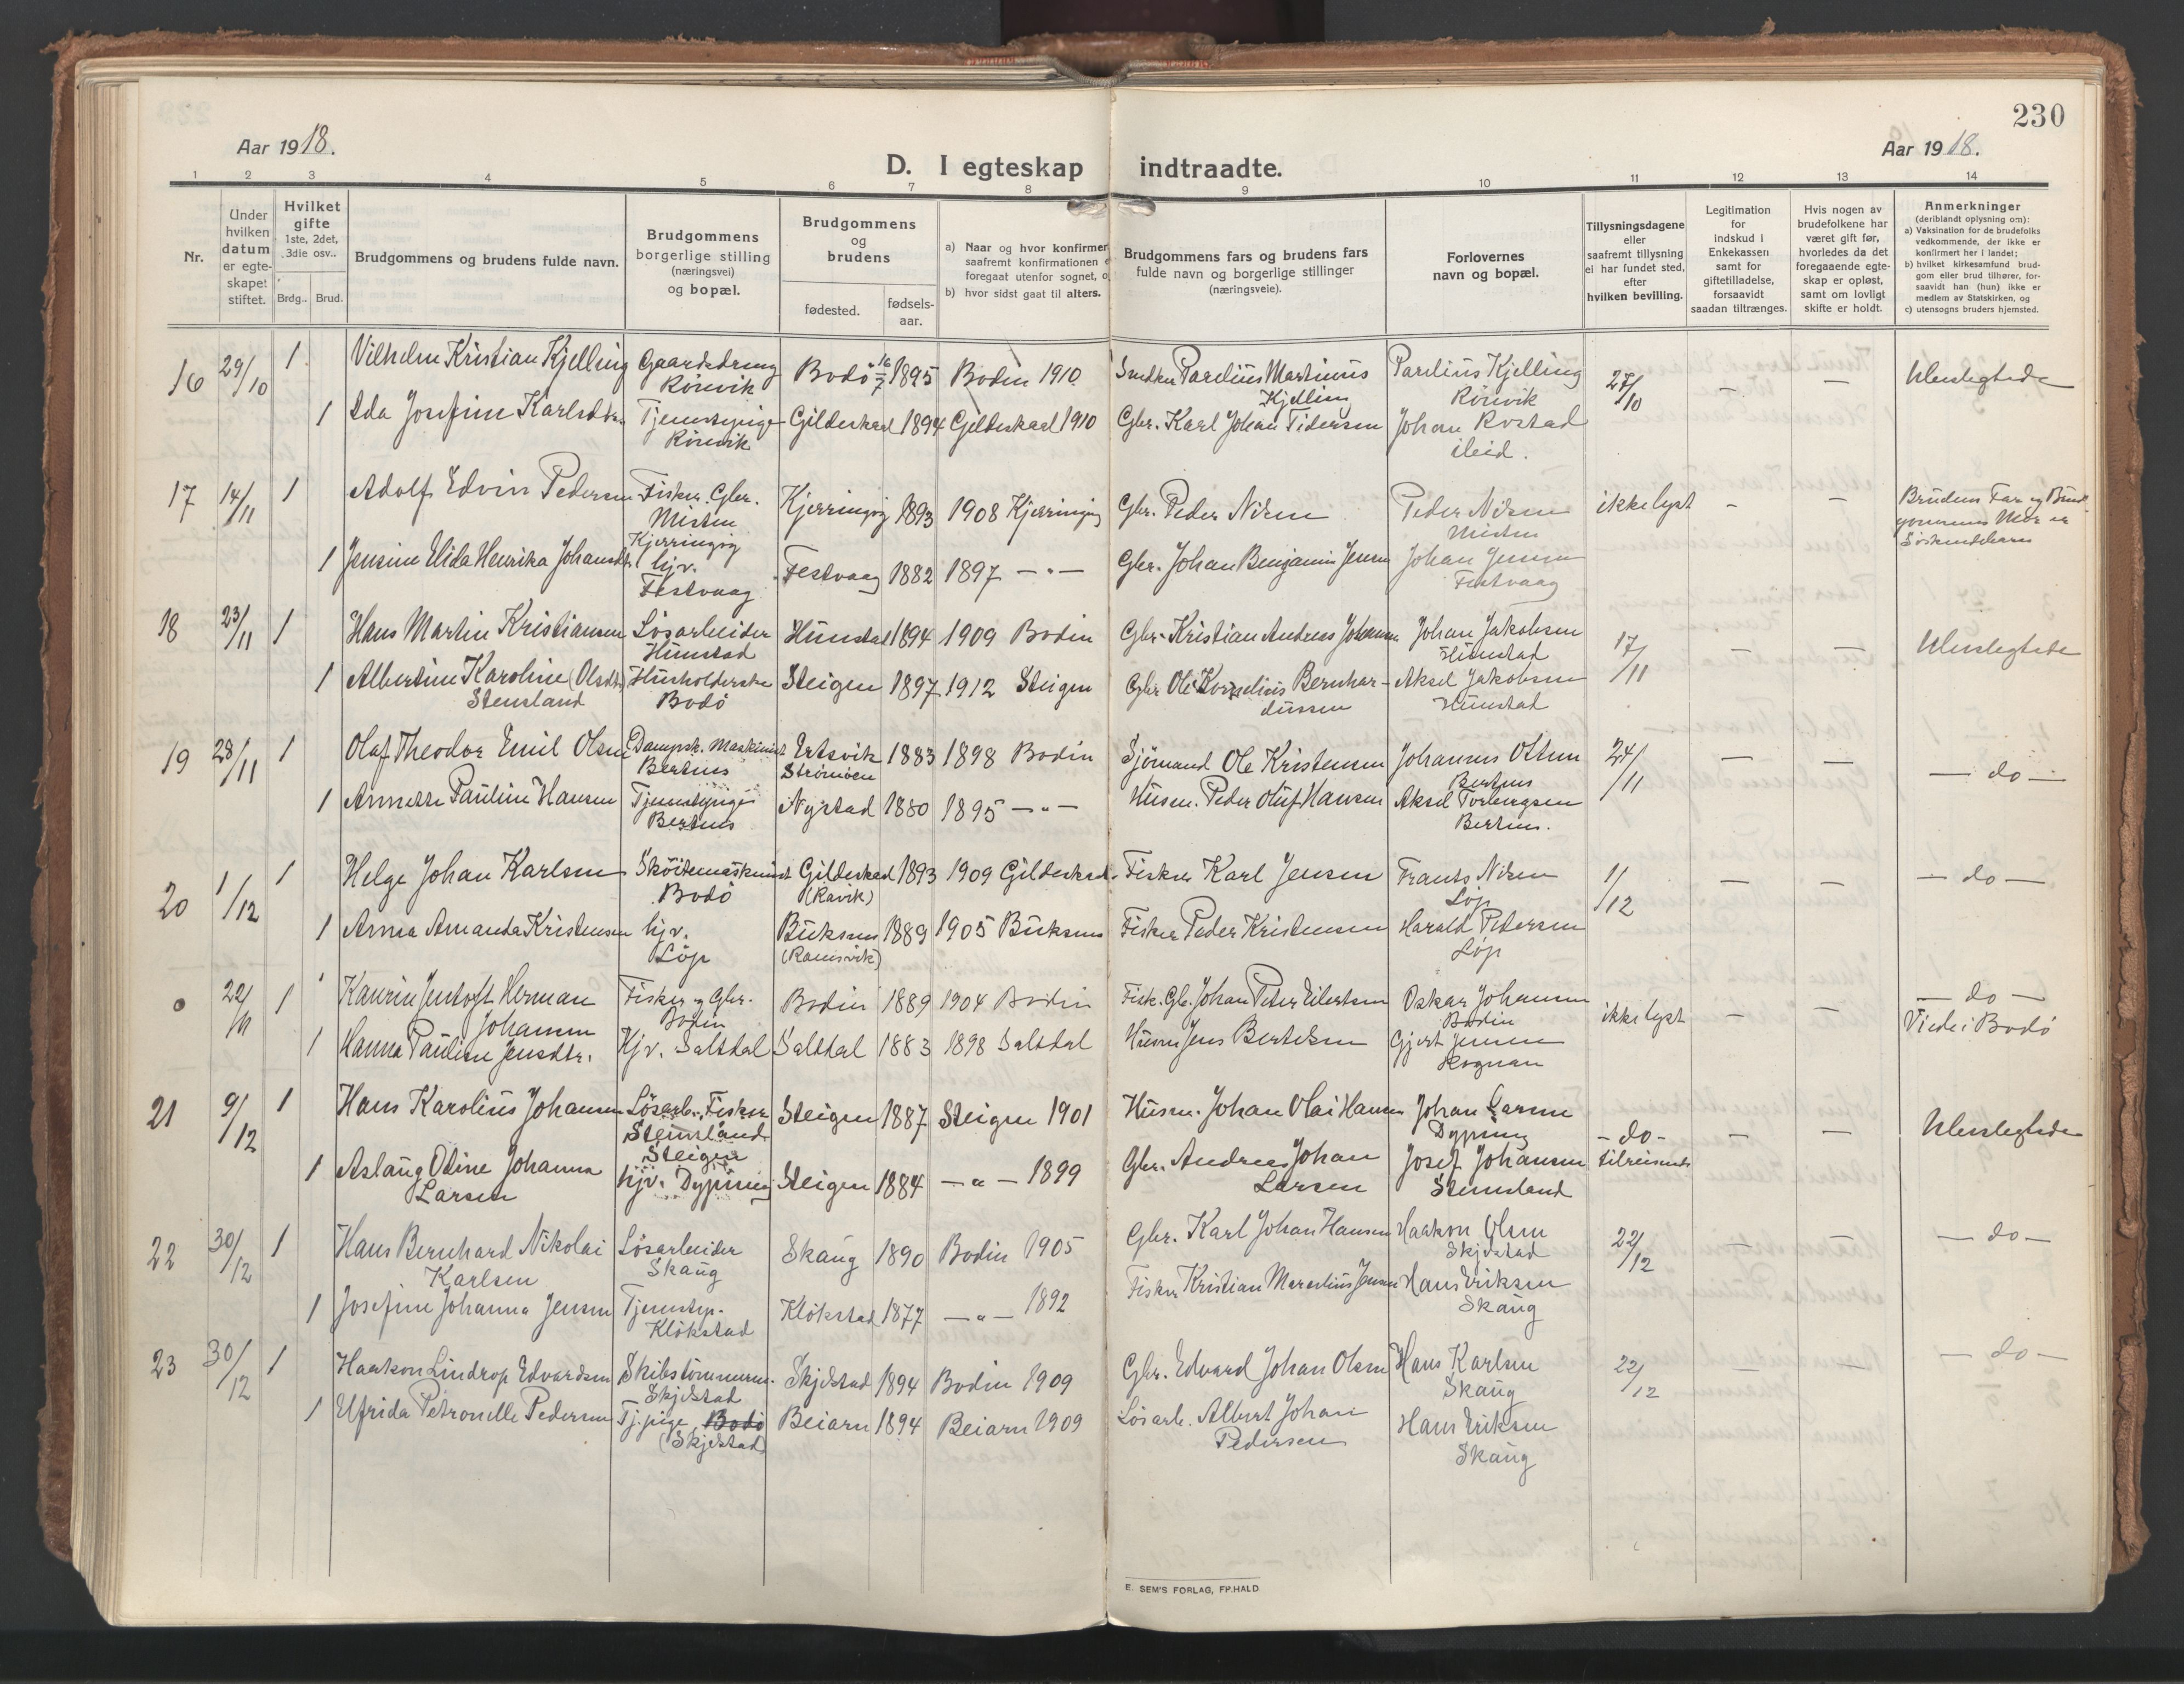 230
Aar 1918.
Aar 1918.
D. I egteskap indtraadte.
1 2 3 4 5 6 7 8 9 10 11 12 13 14
Nr.
Under hvilken datum er egte-skapet stiftet.
Hvilket gifte 1ste, 2det, 3die osv..
Brdg.. Brud.
Brudgommens og brudens fulde navn.
Brudgommens borgerlige stilling (næringsvei) og bopæl.
Brudgommens og brudens
fødested.
fødsels-aar.
a) Naar og hvor konfirmer
saafremt konfirmationen
foregaat utenfor sognet, o
b) hvor sidst gaat til alters.
Brudgommens fars og brudens fars
fulde navn og borgerlige stillinger
(næringsveie).
Forlovernes
navn og bopæl.
Tillysningsdagene
eller
saafremt tillysning
ei har fundet sted,
efter
hvilken bevilling.
Legitimation
for
indskud i
Enkekassen
samt for
giftetilladelse,
forsaavidt
saadan tiltrænges.
Hvis nogen av
brudefolkene har
været gift før,
hvorledes da det
foregaaende egte-
skap er opløst,
samt om lovligt
skifte er holdt.
Anmerkninger
(deriblandt oplysning om):
a) Vaksination for de brudefolks
vedkommende, der ikke er
konfirmert her i landet;
b) hvilket kirkesamfund brud-
gom eller brud tilhører, for-
saavidt han (hun) ikke er
medlem av Statskirken, og
c) utensogns bruders hjemsted.
16 29/10 1 Vilhelm Kristian Kjelling Gaardsdreng Rönvik Bodö 16/7 1895 Bodin 1910 Snedker Parelius Martinus Kjelling Parelius Kjelling Rönvik 27/10 — — Ubeslegtede
1 Ida Josefine Karlsdtr. Tjenestepige Rönvik Gildeskaal 1894 Gildeskaal 1910 Gbr. Karl Johan Johan Rostad ibid.
17 14/11 1 Adolf Edvin Pedersen Fisker. Gbr. Misten Kjerringöy Kjerringöy 1893 1908 Kjerringöy Gbr. Peder Nilsen Peder Nilsen Misten ikke lyst — — Brudens Far og Brud-
gommens Mor er
Söskendebarn
1 Jensine Elida Henrika Johansdtr. hjv. Festvaag Festvaag 1882 1897 —"— Gbr. Johan Benjamin Jensen Johan Jensen Festvaag
18 23/11 1 Hans Martin Kristiansen Lösarbeider Hunstad Hunstad 1894 1909 Bodin Gbr. Kristian Andreas Johansen Johan Jakobsen Hunstad 17/11 — — Ubeslegtede
1 Albertine Karoline (Olsdtr.) Stensland Husholderske Bodö Steigen 1897 1912 Steigen Gbr Ole Kornelius Bernhar-
dussen Aksel Jakobsen Hunstad
19 28/11 1 Olaf Theodor Emil Olsen Dampsk. Maskinist Bertnes Ertsvik Strömöen 1883 1898 Bodin Sjömand Ole Kristensen Johannes Ottesen Bertnes 24/11 — — — do —
1 Annette Pauline Hansen Tjenestepige Bertnes Nystad 1880 1895 —"— Husm. Peder Oluf Hansen Aksel Torbergsen Bertnes.
20 1/12 1 Helge Johan Karlsen Sköitemaskinist Bodö Gildeskaal (Ravik) 1893 1909 Gildeskaal Fisker Karl Jensen Frants Nilsen Löp 1/12 — — — do —
1 Anna Amanda Kristensen hjv. Löp Buksnes (Ramsvik) 1889 1905 Buksnes Fisker Peder Kristensen Harald Pedersen Löp
0 22/11 1 Kaurin Jentoft Herman Johansen Fisker og Gbr. Bodin Bodin 1889 1904 Bodin Fisk. Gb. Johan Peter Eilertsen Oskar Johansen Bodin ikke lyst — — — do —
Viede i Bodö
1 Hanna Pauline Jensdtr. Hjv. Saltdal Saltdal 1883 1898 Saltdal Husm Jens Bertelsen Gjert Jensen Rognan
21 9/12 1 Hans Karolius Johansen Lösarb. Fisker Stensland Steigen Steigen 1887 Steigen 1901 Husm. Johan Olai Hansen Johan Larsen Dyping — do — tilreisende — — Ubeslegtede
1 Aslaug Otine Johanna Larsen hjv. Dyping Steigen 1884 —"— 1899 Gbr. Andreas Johan Larsen Josef Johansen Stensland
22 30/12 1 Hans Bernhard Nikolai Karlsen Lösarbeider Skaug Skaug 1890 Bodin 1905 Gbr. Karl Johan Hansen Haakon Olsen Skjelstad 22/12 — — — do —
1 Josefine Johanna Jensen Tjenestep. Klökstad Klökstad 1877 —"— 1892 Fisker Kristian Marselius Jensen Hans Eriksen Skaug
23 30/12 1 Haakon Lindrop Edvardsen Skibstömmerm. Skjelstad Skjelstad 1894 Bodin 1909 Gbr. Edvard Johan Olsen Hans Karlsen Skaug 22/12 — — — do —
1 Ufrida Petronelle Pedersen Tj. pige Bodö (Skjelstad) Beiarn 1894 Beiarn 1909 Lösarb. Albert Johan Pedersen Hans Eriksen Skaug
E. SEM'S FORLAG, FR.HALD